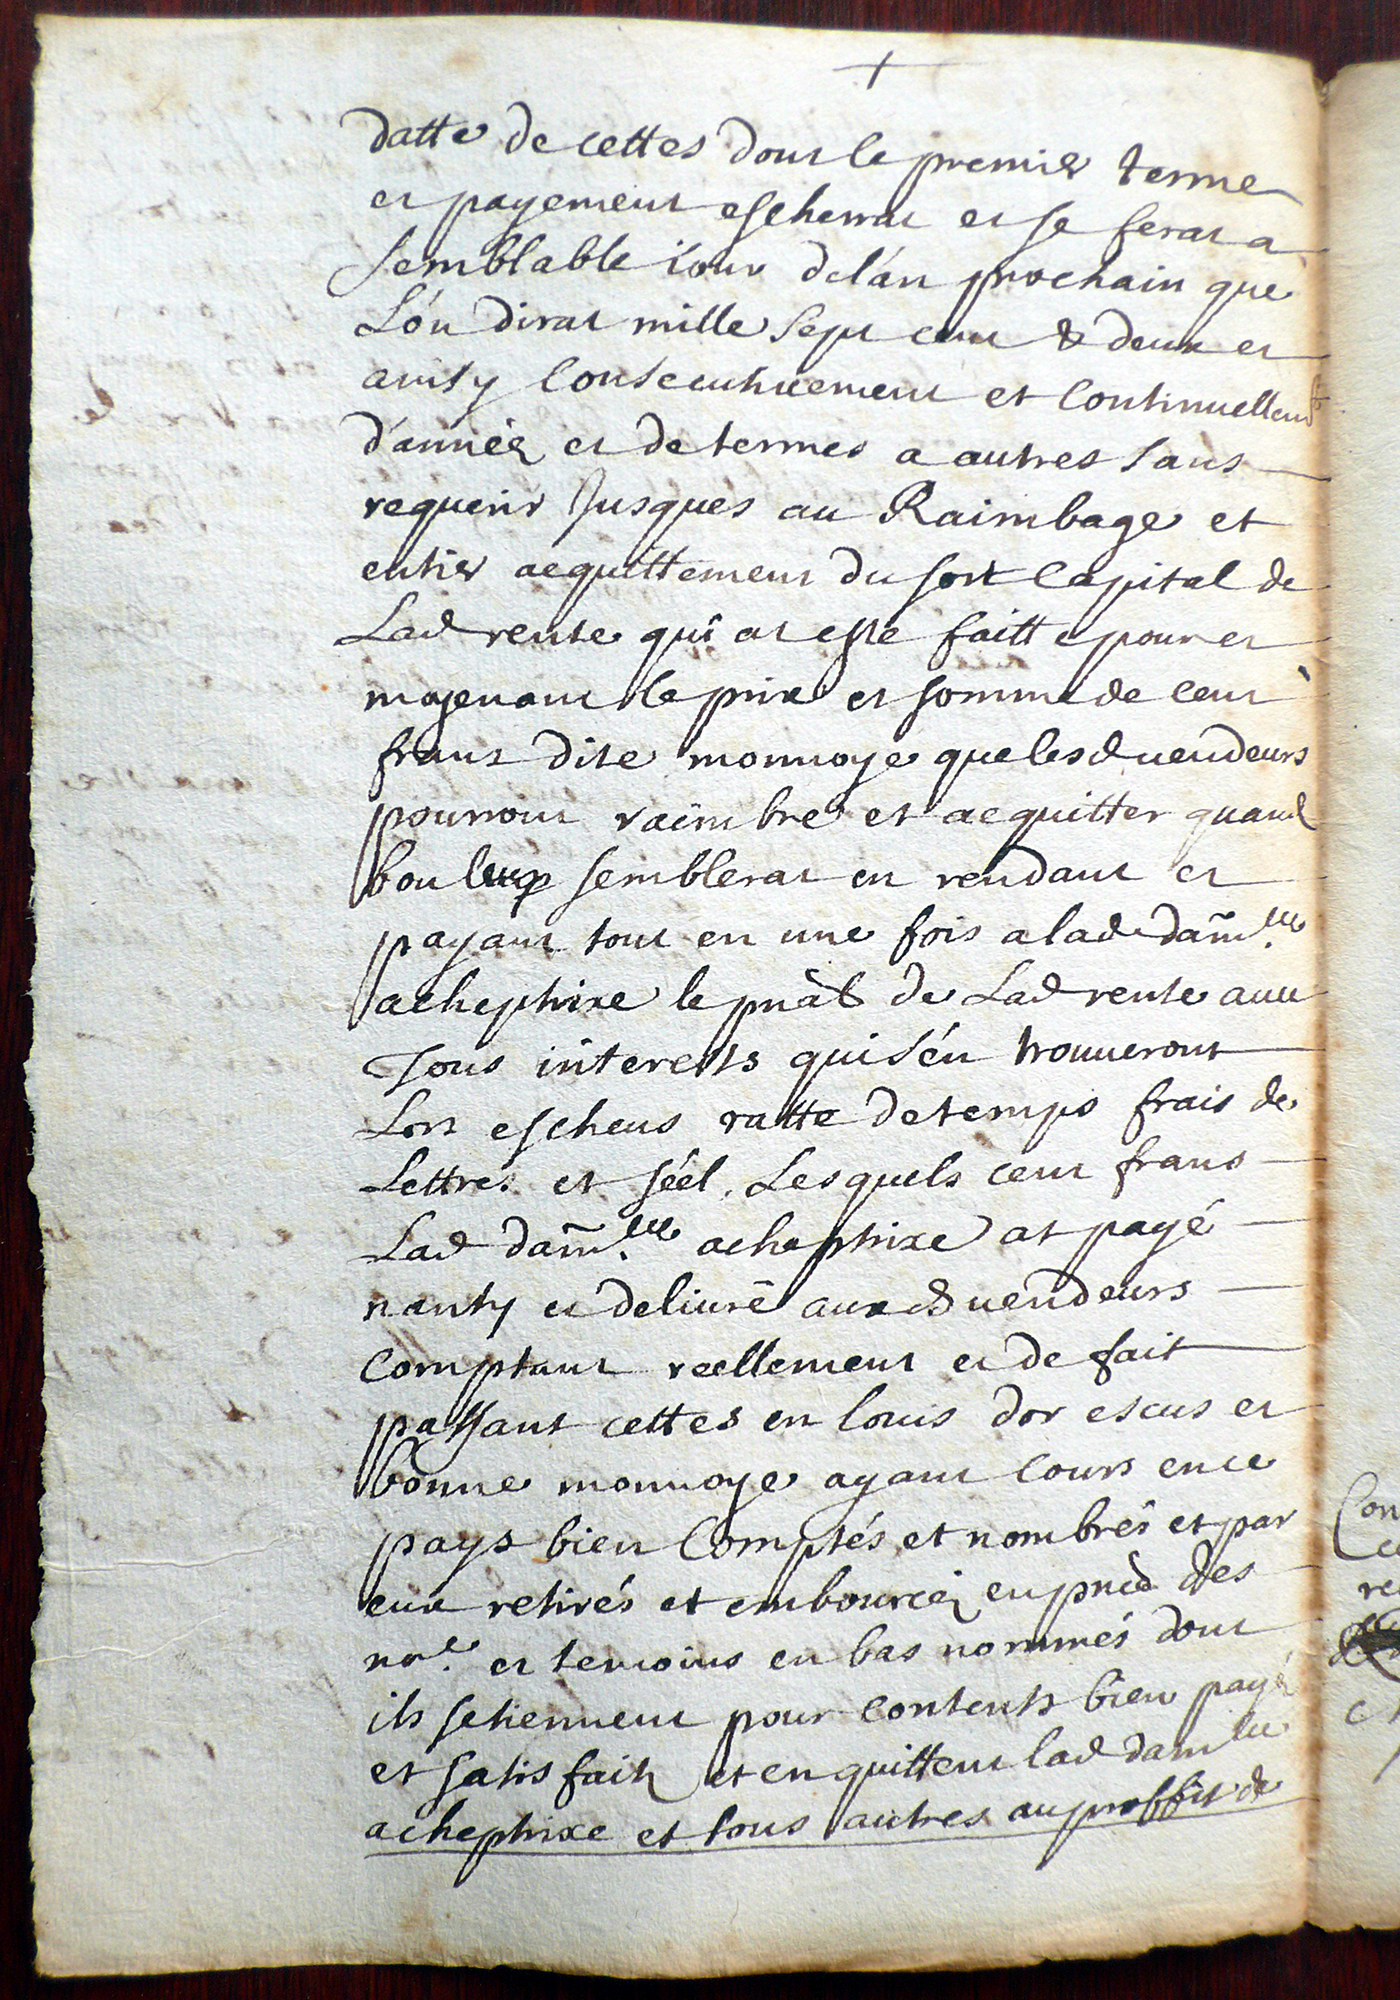 datte de cettes dont le premier terme
et payement escherrat et se ferat a
semblable iour de l'an prochain que
L'on dirat mille sept cent & deux et
ainsy Consecutivement et Continuellem͡t
d'anneé et de termes a autres sans
requerir Jusques au Raimbage et
entier acquittement du sort Capital de
Lad rente qui at esté faitte pour et
moyenant le prix et somme de Cent
frans dite monnoye que lesd vendeurs
pourront raimbre et acquitter quand
bon semblerat en rendant et
payant tout en une fois a lad dam͡lle
acheptrixe le pnãl de Lad rente avec
Tous interests qui s'en trouueront
Lors escheus ratte de temps frais de
Lettres et séel. Lesquels cent frans
Lad dam͡lle acheptrixe at payé
nanty et deliuré auxd vendeurs
Comptant reellement et de fait
passant cettes en louis d'or escus et
bonne monnoye ayant Cours en ce
pays bien Comptés et nombrés et par
eux retirés et embourcéz en pnce des
nre et temoins en bas nommés dont
ils se tiennent pour contents bien payéz
et satisfaitz et en quittent lad damlle
acheptrixe et tous autres au proffit de
Con
re